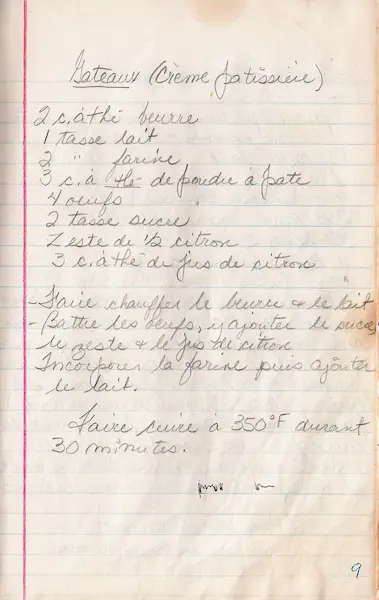 Gateaux (Crème patissière)
2 c. à thé beurre
1 tasse lait
2 " farine
3 c. à thé de poudre à pate
4 oeufs
2 tasse sucre
Zeste de 1/2 citron
3 c. à thé de jus de citron
- Faire chauffer le beurre & le lait
- Battre les oeufs, y ajouter le sucre,
le zeste & le jus de citron
Incorporer la farine puis ajoûter
le lait.
Faire cuire à 350°F durant
30 minutes.
9